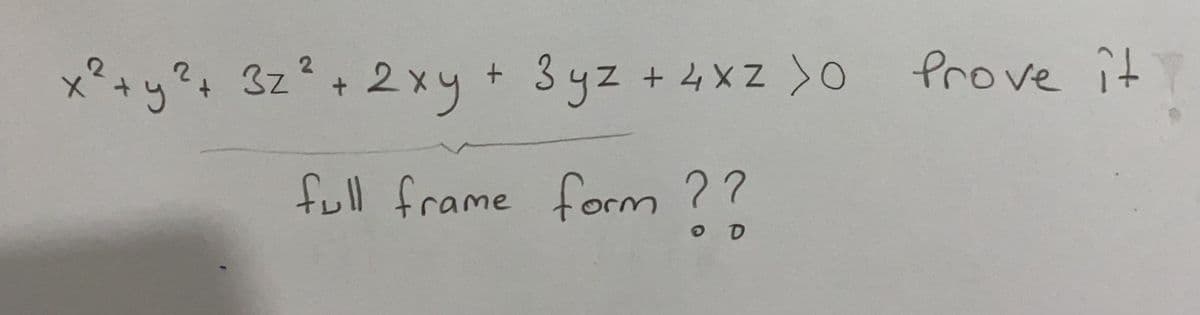 x² + y² + 3z² + 2xy + 3yz + 4xz > 0 Prove it !
full frame form ??